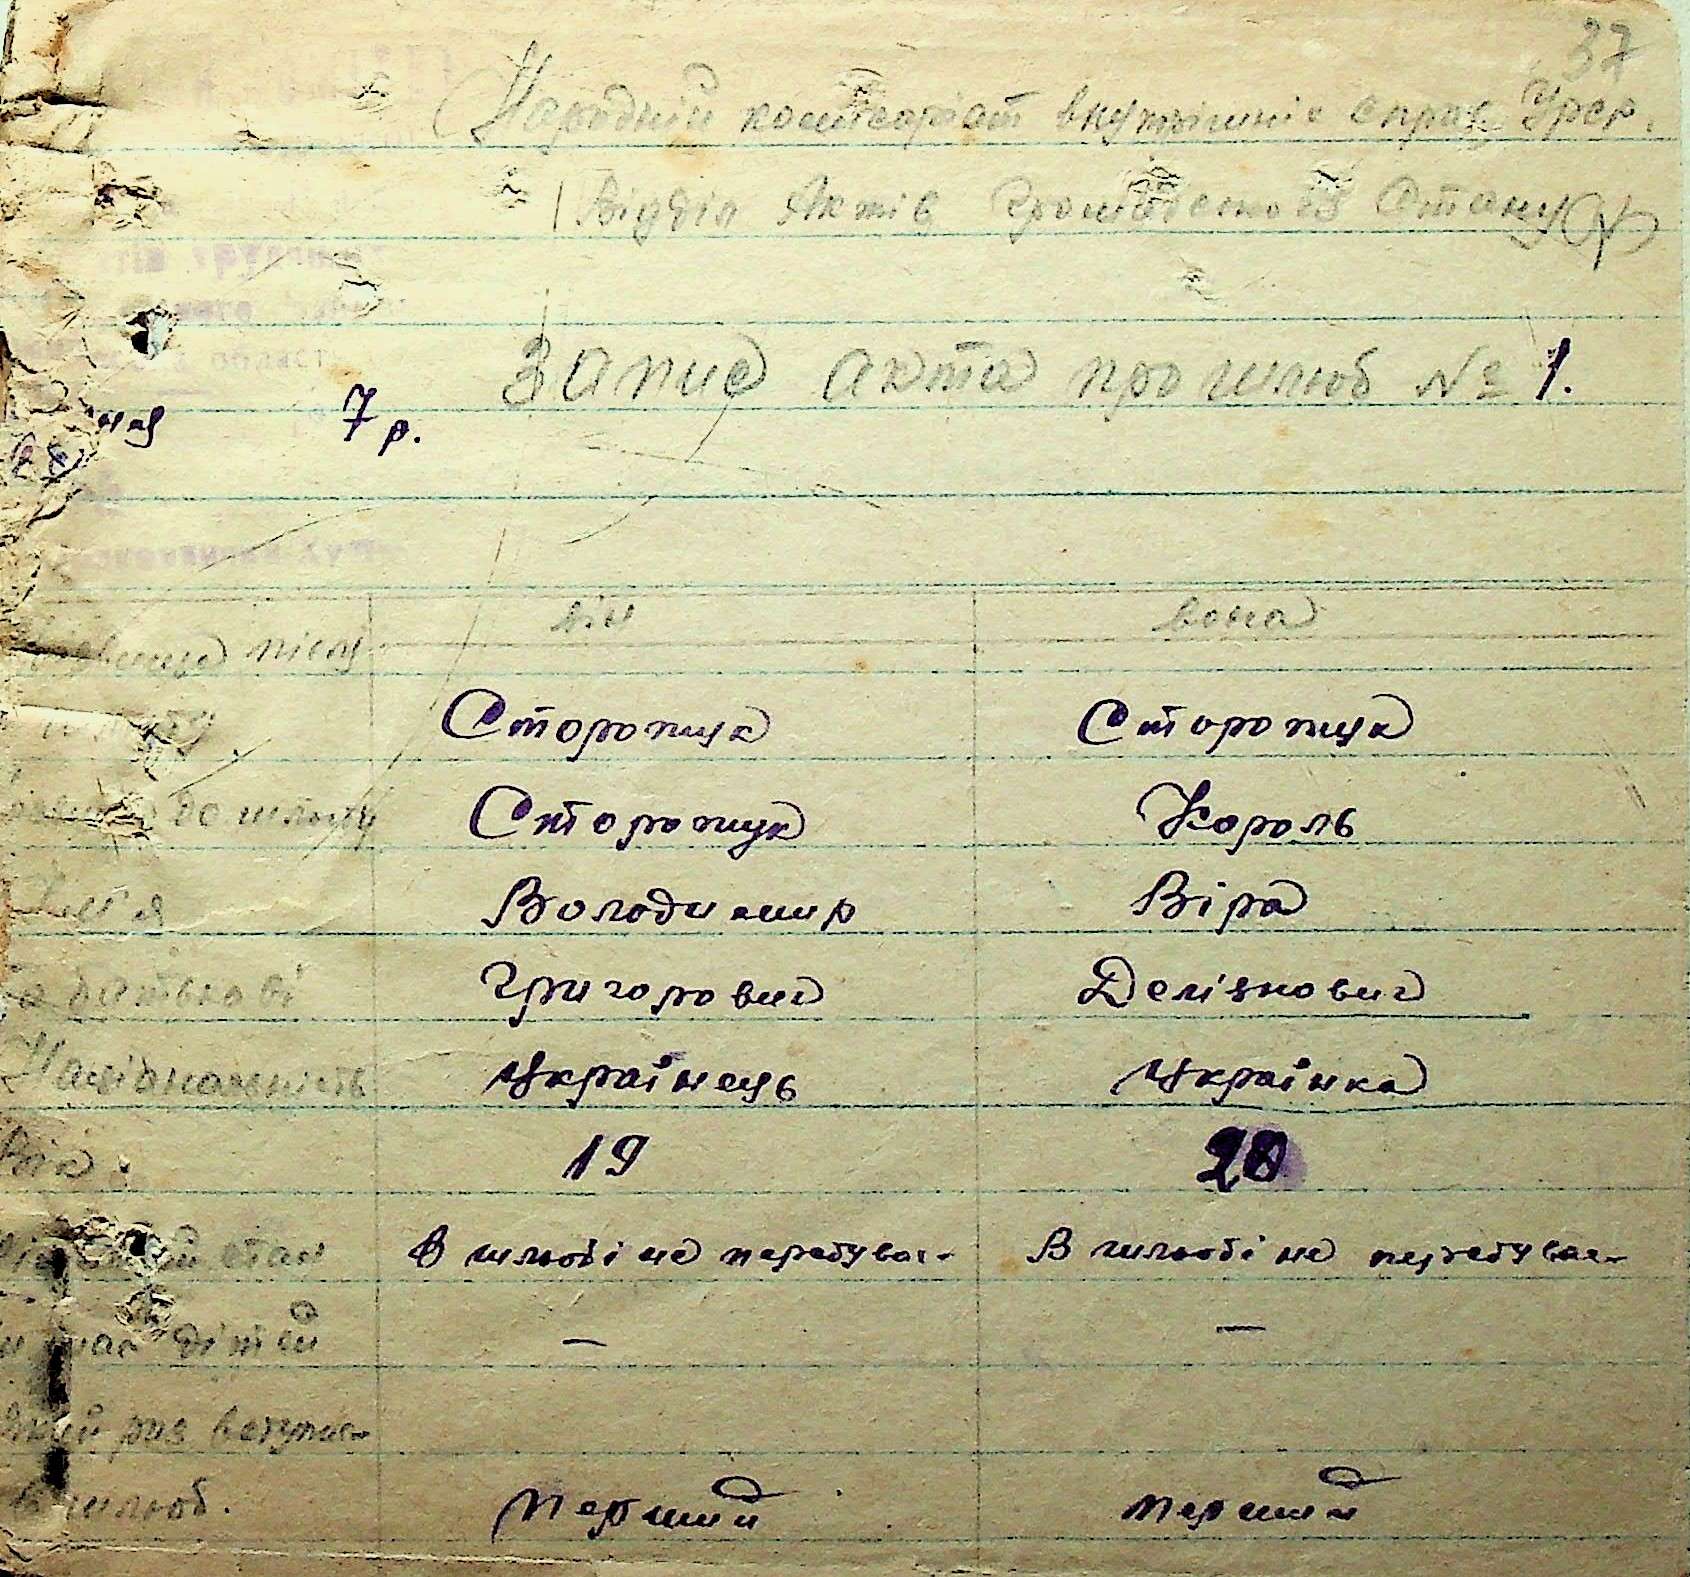 37
Народній комісаріат внутрішніх справ Урср.
Відділ Актів Громадського Стану
Запис акта про шлюб № 1.
7 р.
він вона
після
Сторожук Сторожук
до шлюбу Сторожук Король
Ім'я Володимир Віра
по батькові Григорович
Національність Українець Українка
Вік 19 20
стан В шлюбі не перебував В шлюбі не перебував
має дітей — —
який раз вступає
в шлюб. Перший перший